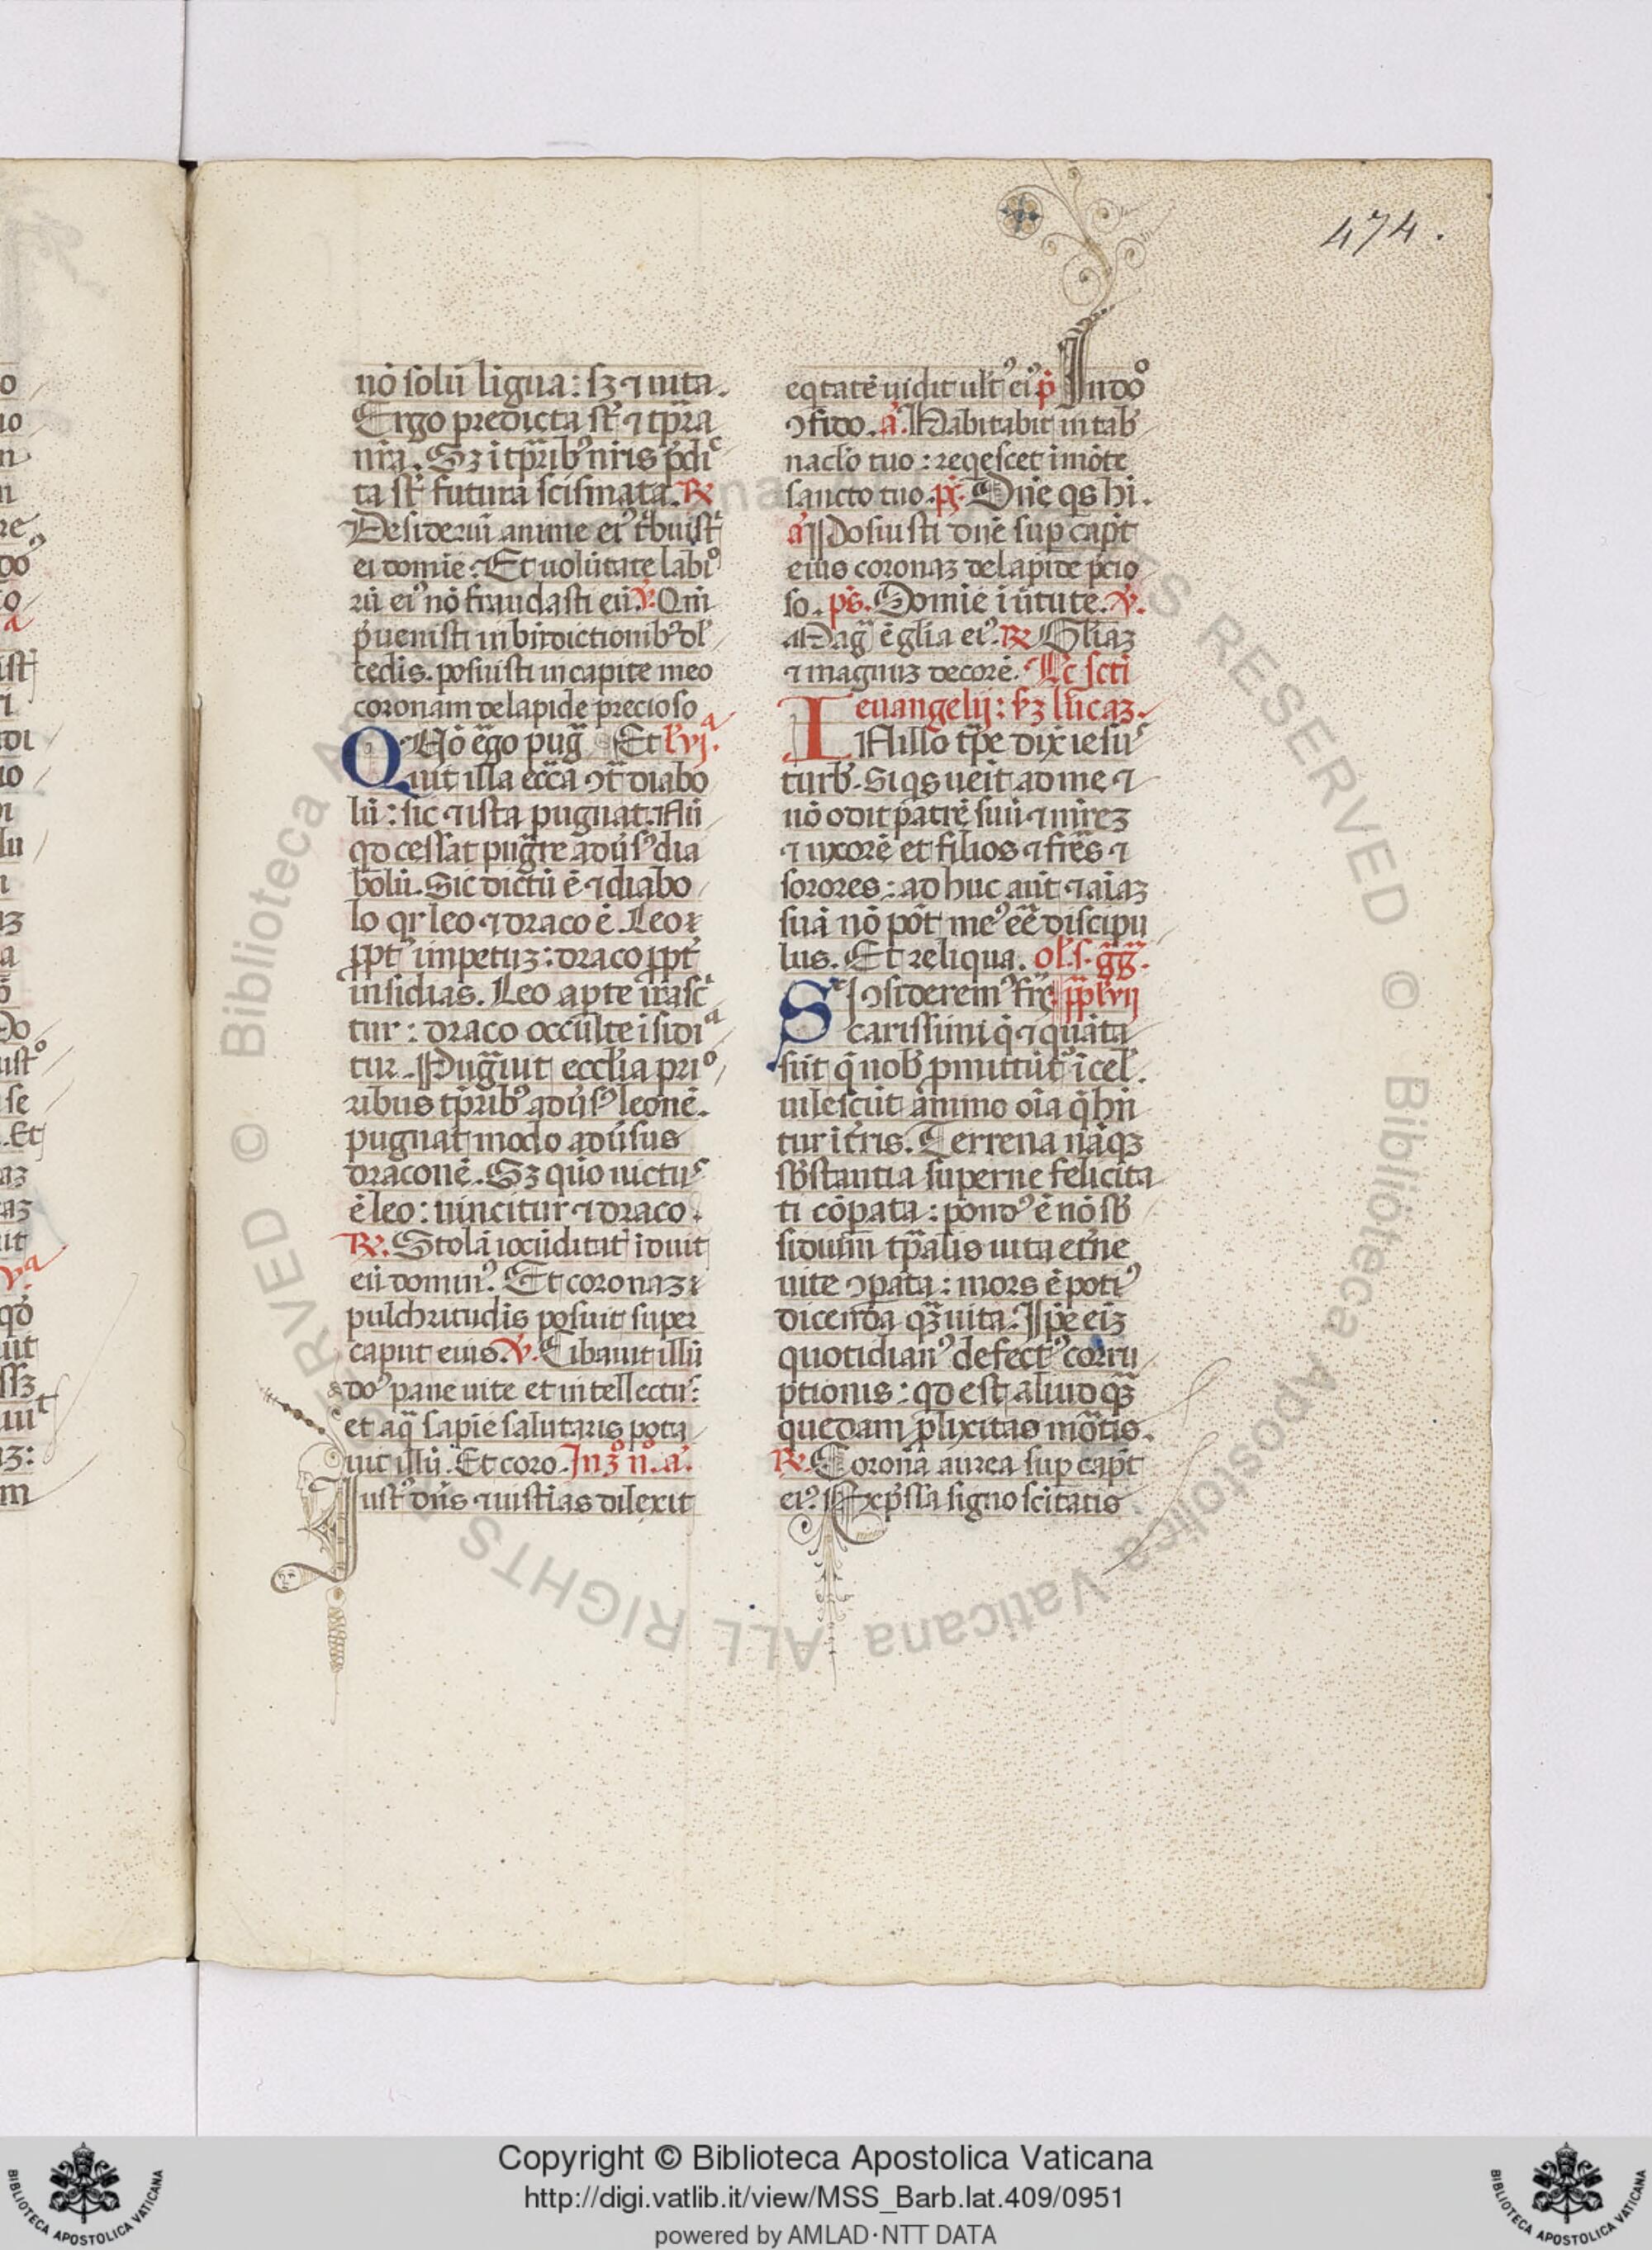 474.
nō solū ligua: sꝫ ⁊ uita.
Ergo predicta st̄ ⁊ tp̄ra
nr̄a. Sꝫ i tp̄rib⁹ nr̄is p̄dic
ta st̄ futura scismata. ℟
Desideriū anime ei⁹ t͛buisti
ei domīe. Et uolūtate labio
rū ei⁹ nō fraudasti eū. ℣. Qm̄
p̄uenisti in bn̄dictionib⁹ dul
cedis. posuisti in capite meo
coronam de lapide precioso
Nō ego pug̃ Et lvi.ª
Quit illa ecc̄a ↄt̃ diabo
lū: sic ⁊ ista pugnat. Nū
qd̄ cessat pug̃re adūs⁹ dia
bolū. Sic dictū ē ⁊ diabo
lo qr leo ⁊ draco ē. Leo
ꝓpt̄ impetuꝫ: draco ꝓpt̄
insidias. Leo apte irasci
tur: draco occulte isidia
tur. Pug̃uit ecclīa prio
ribus tp̄rib⁹ adūs⁹ leonē.
pugnat modo adūsus
draconē. Sꝫ quō uictus
ē leo: uincitur ⁊ draco.
℟. Stolā iocūditat̄ iduit
eū domin⁹. Et coronaꝫ
pulchritudīs posuit super
caput eius. ℣. Cibauit illū
do⁹ pane uite et intellectus:
et aq̃ sapīe salutaris pota
uit illū. Et coro. In ꝫ n̊. a.
Just⁹ dn̄s ⁊ iustīas dilexit
eq̄tatē uidit ult⁹ ei⁹ p̄ In do
ↄfido. a. Habitabit in tab
nacl̄o tuo: reqescet i mōte
sancto tuo. p̄s. Dn̄e qs hi.
a Posuisti dn̄e suꝑ capit
eius coronaꝫ de lapide p̄cio
so. p̄s. Domīe i ūtute. ℣.
Mag̃ ē gl̄ia ei⁹. ℟ Gl̄iaꝫ
⁊ magnuꝫ decorē. Lc̄ sc̄ti
euangelij: sꝫ lucaꝫ.
IN illo tp̄e dix̄ iesus
turb̄. Si qs ueīt ad me ⁊
nō odit patrē suū ⁊ mr̄eꝫ
⁊ uxorē et filios ⁊ fr̄es ⁊
sorores: ad huc aūt ⁊ aīaꝫ
suā nō pōt me⁹ eē discipu
lus. Et reliqua. ol̄. s. gg̃.
Si ↄsiderem⁹ fr̄es pp lvij
carissimi q̄ ⁊ quāta
sūt q̄ nob̄ ꝓmittūt̄ i cel̄.
uilescūt animo oīa q̄ hn̄
tur i t̄ris. Terrena nāqꝫ
sb̄stantia superne felicita
ti cōpata: pond⁹ ē nō sb̄
sidium tp̄alis uita et̄ne
uite ↄpata: mors ē poti⁹
dicenda qꝫ uita. Ip̄e eīꝫ
quotidian⁹ defect⁹ corru
ptionis: qd̄ est aliud qꝫ
quedam ꝓlixitas mōtis.
℟. Corona aurea suꝑ capit
ei⁹. Exp̄ssa signo sc̄itatis
Copyright © Biblioteca Apostolica Vaticana
http://digi.vatlib.it/view/MSS_Barb.lat.409/0951
powered by AMLAD·NTT DATA
BIBLIOTECA APOSTOLICA VATICANA
BIBLIOTECA APOSTOLICA VATICANA
© Biblioteca Apostolica Vaticana ALL RIGHTS RESERVED © Biblioteca Apostolica Vaticana ALL RIGHTS RESERVED